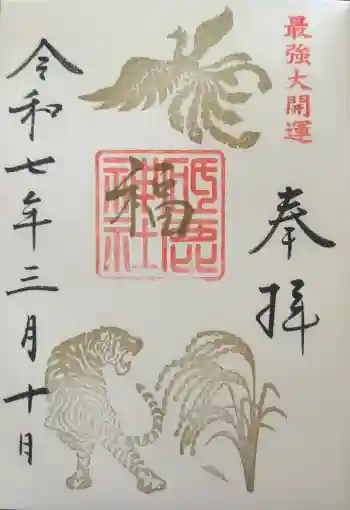 最強大開運
奉拝
福
令和七年三月十日